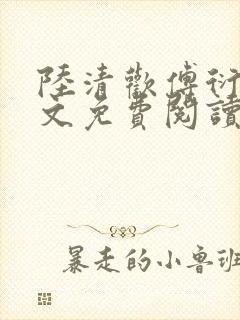 陸清歡傅衍
文免費閱讀
暴走的小魯班